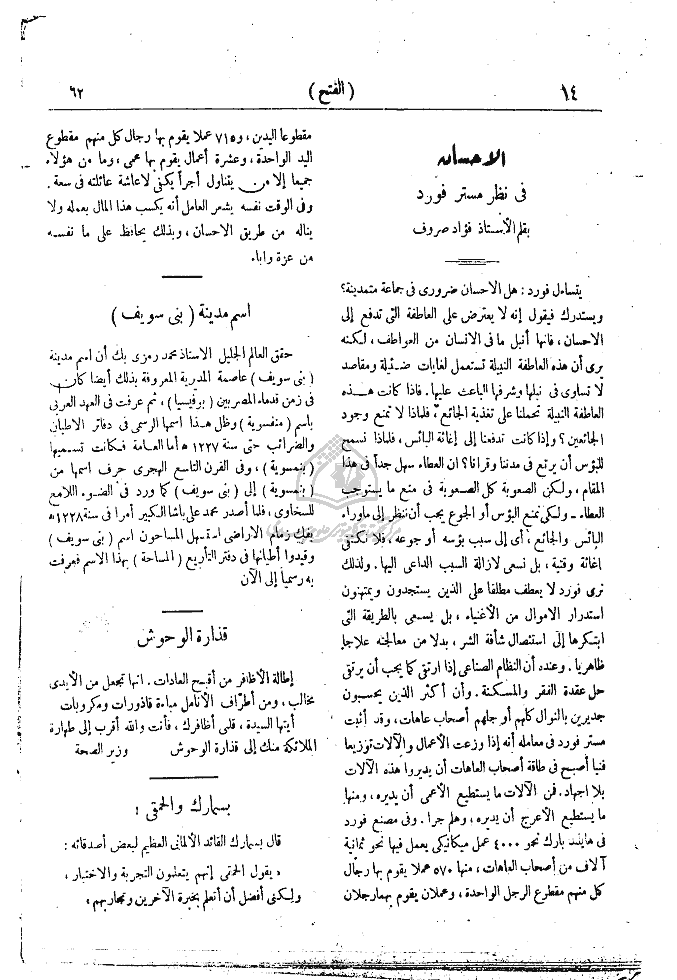 ١٤
(الفتح)
٦٢
الاحسان
فى نظر مستر فورد
بقلم الأستاذ فؤاد صروف
يتساءل فورد : هل الاحسان ضرورى فى جماعة متمدينة ؟
ويستدرك فيقول إنه لا يعترض على العاطفة التى تدفع إلى
الاحسان ، فانها أنبل ما فى الانسان من العواطف ، لكنه
يرى أن هذه العاطفة النبيلة تستعمل لغايات ضئيلة ومقاصد
لا تساوى فى نبلها وشرفها الباعث عليها . فاذا كانت هذه
العاطفة النبيلة تحملنا على تغذية الجائع ، فلماذا لا نمنع وجود
الجائعين ؟ وإذا كانت تدفعنا إلى إغاثة البائس ، فلماذا نسمح
للبؤس أن يرتع فى مدننا وقرانا ؟ ان العطاء سهل جداً فى هذا
المقام ، ولكن الصعوبة كل الصعوبة فى منع ما يستوجب
العطاء - ولكى نمنع البؤس أو الجوع يجب أن ننظر إلى ماوراء
البائس والجائع ، أى إلى سبب بؤسه أو جوعه ، فلا نكتفى
إغاثة وقتية ، بل نسعى لازالة السبب الداعى اليها . ولذلك
ترى فورد لا يعطف مطلقا على الذين يستجدون ويمتهنون
استدرار الاموال من الأغنياء ، بل يسعى بالطريقة التى
ابتكرها إلى استئصال شأفة الشر ، بدلا من معالجته علاجا
ظاهريا . وعنده أن النظام الصناعى إذا ارتقى كما يجب أن يرتقى
حل عقدة الفقر والمسكنة . وأن أكثر الذين يحسبون
جديرين بالنوال كلهم أو جلهم أصحاب عاهات ، وقد أثبت
مستر فورد فى معامله أنه إذا وزعت الأعمال والآلات توزيعا
فنيا أصبح فى طاقة أصحاب العاهات أن يديروا هذه الآلات
بلا اجهاد . فمن الآلات ما يستطيع الأعمى أن يديره ، ومنها
ما يستطيع الاعرج أن يديره ، وهلم جرا . وفى مصنع فورد
فى هايلند بارك نحو ٤٠٠٠ عمل ميكانيكى يعمل فيها نحو ثمانية
آلاف من أصحاب العاهات ، منها ٥٧٠ عملا يقوم بها رجال
كل منهم مقطوع الرجل الواحدة ، وعملان يقوم بهما رجلان
مقطوعا اليدين ، و٧١٥ عملا يقوم بها رجال كل منهم مقطوع
اليد الواحدة ، وعشرة أعمال يقوم بها عمى ، وما من هؤلاء
جميعا إلا من يتناول أجراً يكفى لاعاشة عائلته فى سعة .
وفى الوقت نفسه يشعر العامل أنه يكسب هذا المال بعمله ولا
يناله من طريق الاحسان ، وبذلك يحافظ على ما نفسه
من عزة واباء
اسم مدينة ( بنى سويف )
حقق العالم الجليل الاستاذ محمد رمزى بك أن اسم مدينة
( بنى سويف ) عاصمة المديرية المعروفة بذلك أيضا كان
فى زمن قدماء المصريين ( بوفيسيا ) ، ثم عرفت فى العهد العربى
باسم ( منفسوية ) وظل هذا اسمها الرسمى فى دفاتر الاطيان
والضرائب حتى سنة ١٢٢٧ ه أما العامة فكانت تسميها
( بنمسوية ) ، وفى القرن التاسع الهجرى حرف اسمها من
( بنمسوية ) إلى ( بنى سويف ) كما ورد فى الضوء اللامع
للسخاوى ، فلما أصدر محمد على باشا الكبير أمرا فى سنة ١٢٢٨ ه
بفك زمام الاراضى استسهل المساحون اسم ( بنى سويف )
وقيدوا أطيانها فى دفتر التأريع ( المساحة ) بهذا الاسم فعرفت
به رسمياً إلى الآن
قذارة الوحوش
إطالة الأظافر من أقبح العادات . انها تجعل من الأيدى
مخالب ، ومن أطراف الأنامل مباءة قاذورات ومكروبات
أيتها السيدة ، قلمى أظافرك ، فأنت والله أقرب إلى طهارة
الملائكة منك إلى قذارة الوحوش وزير الصحة
بسمارك والحمقى :
قال بسمارك القائد الألمانى العظيم لبعض أصدقائه :
« يقول الحمقى إنهم يتعلمون التجربة والاختبار ،
ولكنى أفضل أن أتعلم بخبرة الآخرين وتجاربهم »